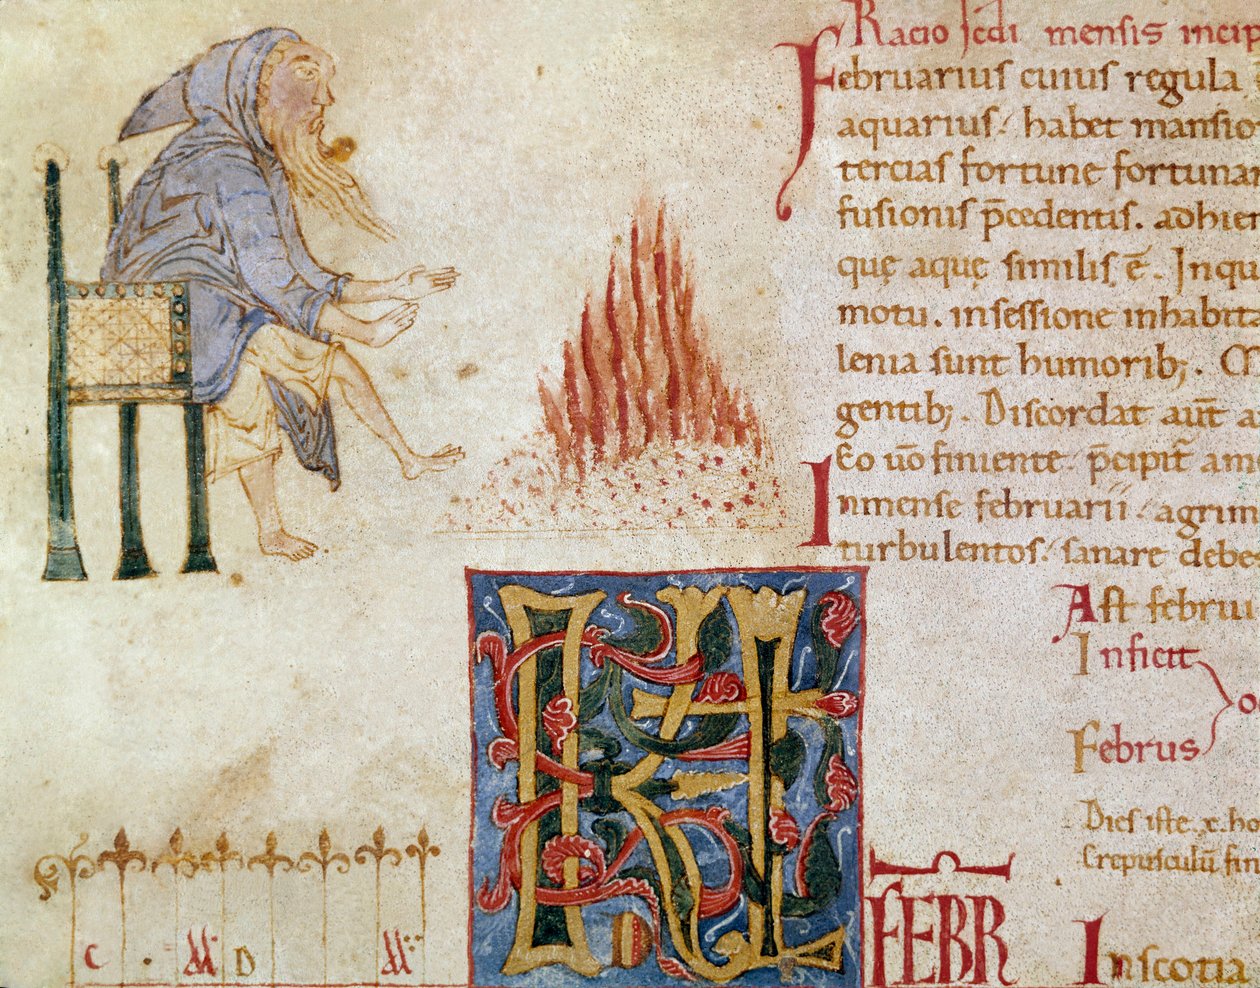 Racio sc̄di mensis incip
Februarius cuius regula
aquarius. habet mansio
tercias fortunę fortunar
fusionis p̄cedentis. adhier
quę aquę similis ē. Inqu
motu. insessione inhabita
lenia sunt humorib;. M
gentib;. Discordat aūt a
Eo ūo finiente. p̄cipit̄ am
Inmense februarii. agrim
turbulentos. sanare debe
Ast februu
Inficit
Februs
Dies iste. x. ho
Crepusculū fin
KL
FEBR
C D
Inscotia